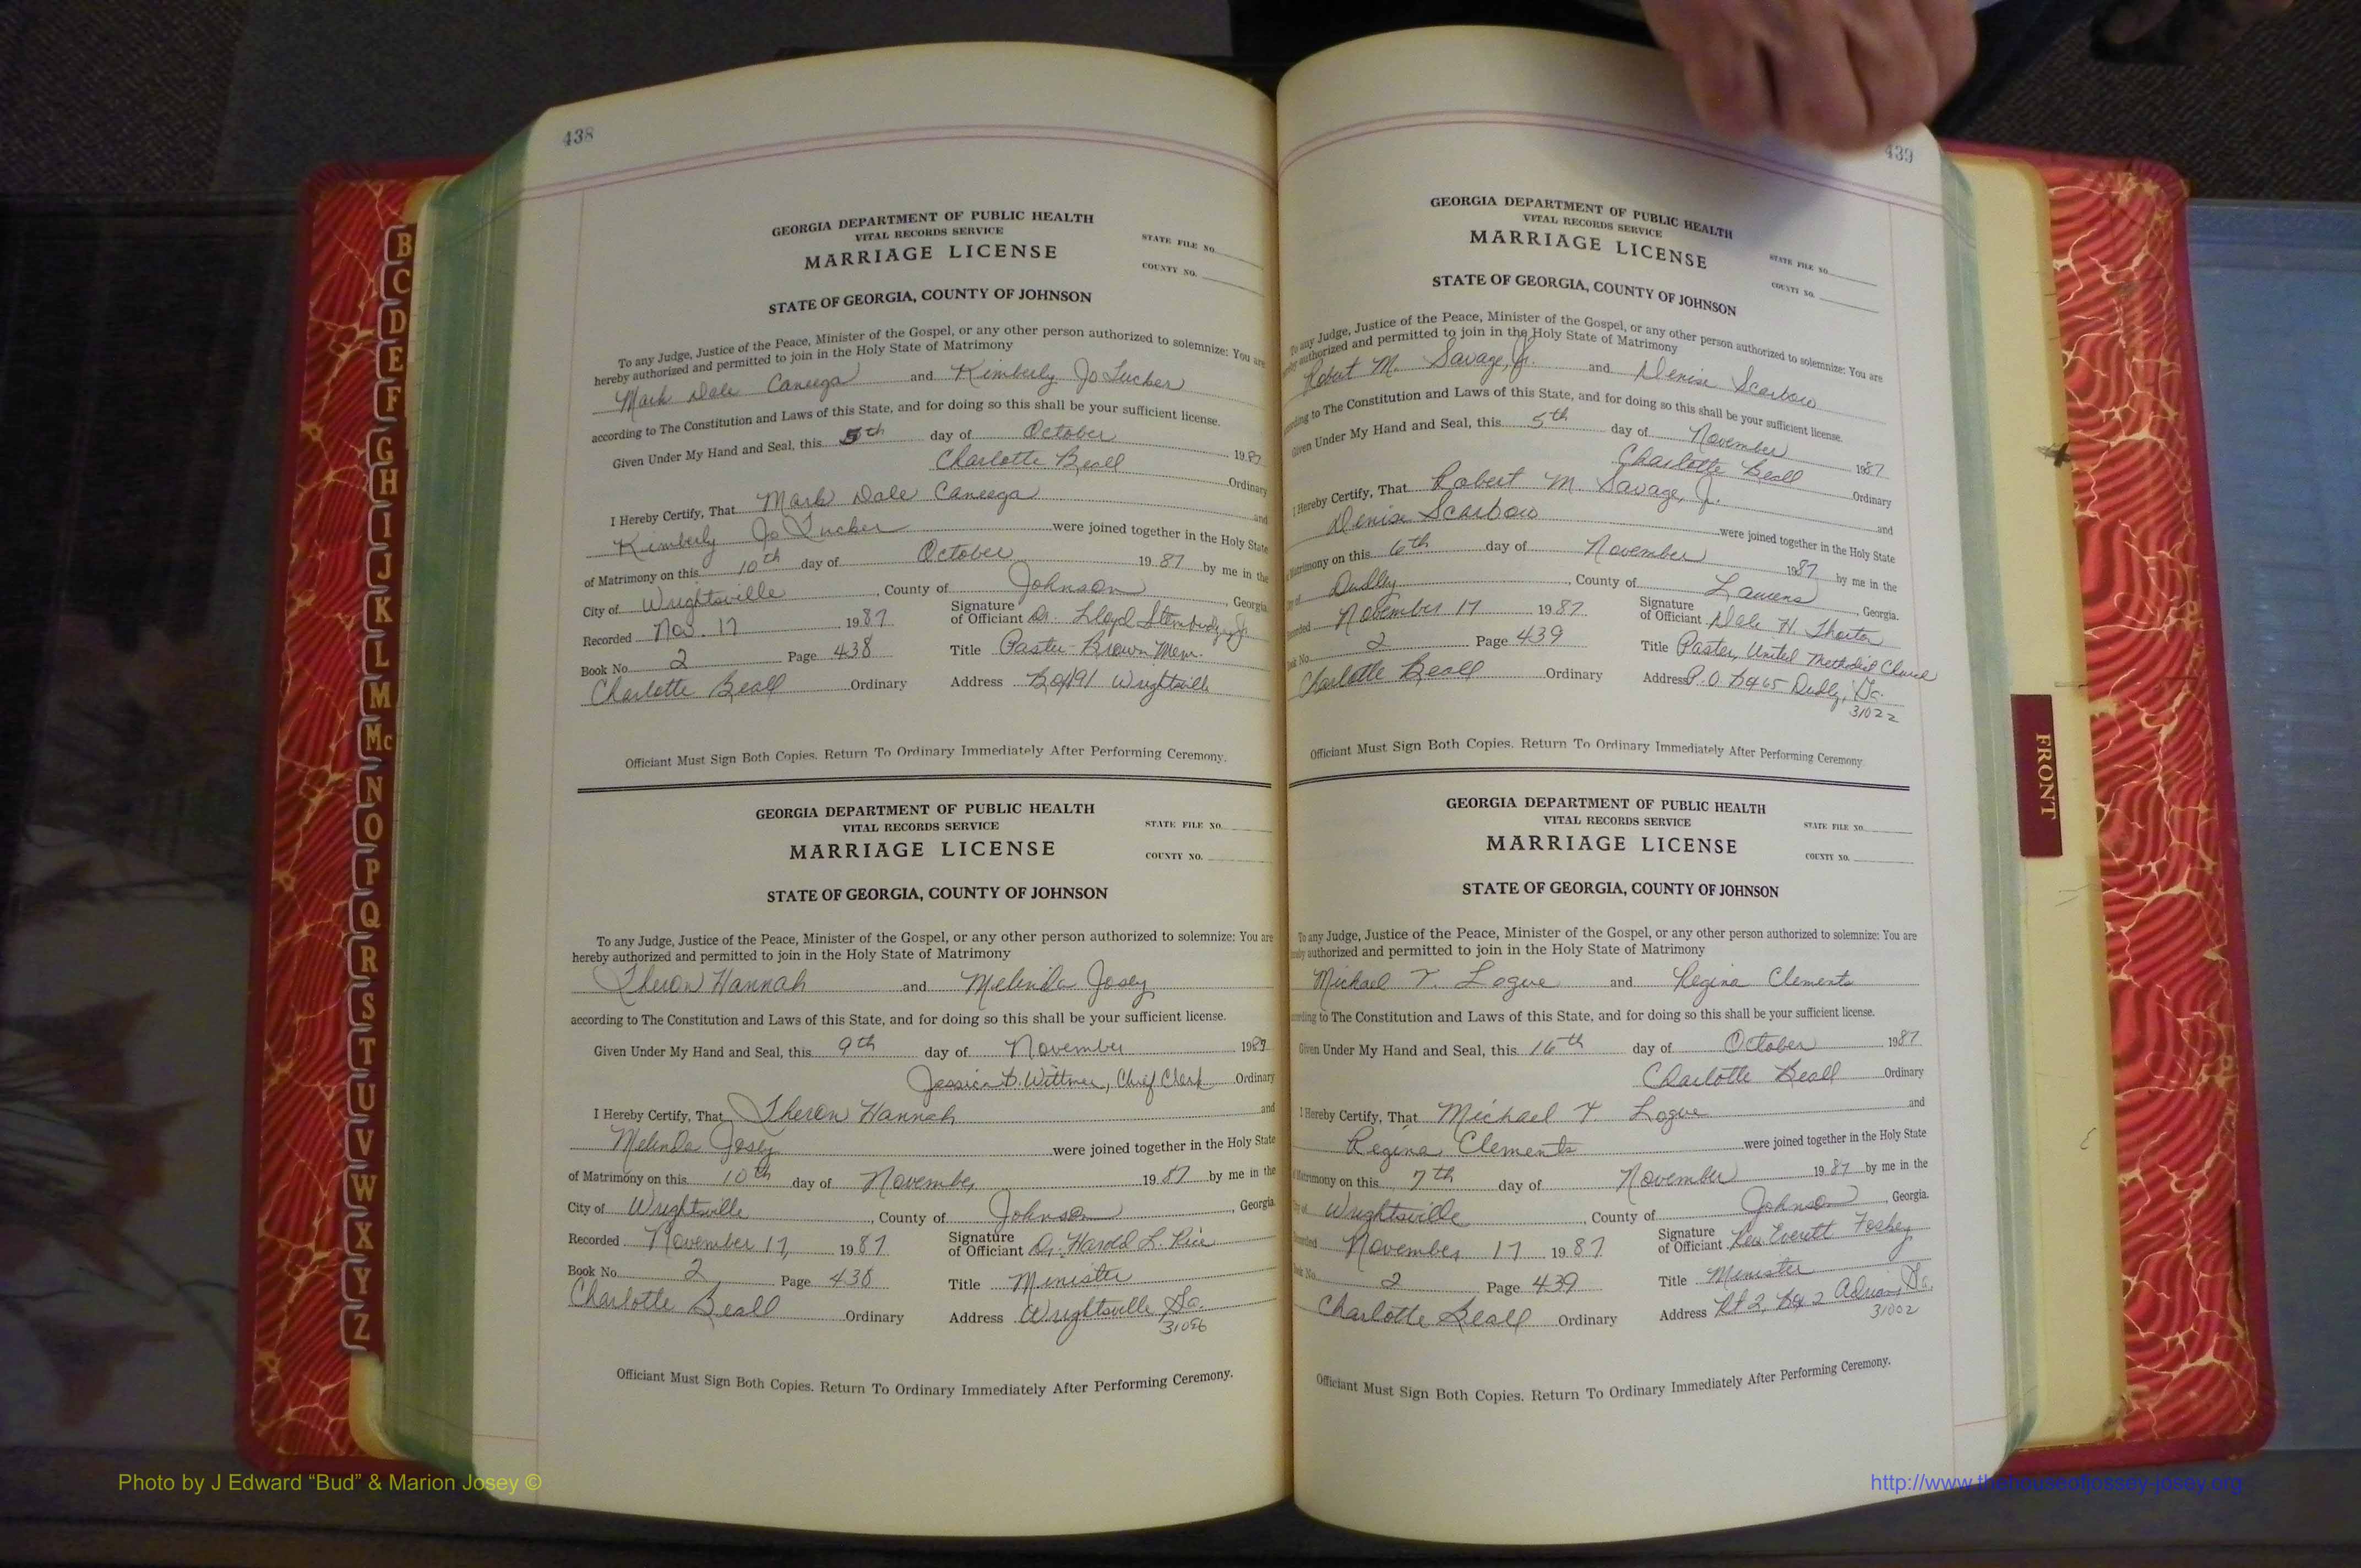 438
GEORGIA DEPARTMENT OF PUBLIC HEALTH
VITAL RECORDS SERVICE
MARRIAGE LICENSE
STATE FILE NO.
COUNTY NO.
STATE OF GEORGIA, COUNTY OF JOHNSON
To any Judge, Justice of the Peace, Minister of the Gospel, or any other person authorized to solemnize: You are
hereby authorized and permitted to join in the Holy State of Matrimony
Mark Dale Caneega and Kimberly Jo Tucker
according to The Constitution and Laws of this State, and for doing so this shall be your sufficient license.
Given Under My Hand and Seal, this 5th day of October 1987
Charlotte Beall Ordinary
I Hereby Certify, That Mark Dale Caneega and
Kimberly Jo Tucker were joined together in the Holy State
of Matrimony on this 10th day of October 1987 by me in the
City of Wrightsville, County of Johnson, Georgia
Recorded Nov. 17 1987 Signature of Officiant Dr. Lloyd
Book No. 2 Page 438 Title Pastor - Brown Mem.
Charlotte Beall Ordinary Address Box 191 Wrightsville
Officiant Must Sign Both Copies. Return To Ordinary Immediately After Performing Ceremony.
GEORGIA DEPARTMENT OF PUBLIC HEALTH
VITAL RECORDS SERVICE
MARRIAGE LICENSE
STATE FILE NO.
COUNTY NO.
STATE OF GEORGIA, COUNTY OF JOHNSON
To any Judge, Justice of the Peace, Minister of the Gospel, or any other person authorized to solemnize: You are
hereby authorized and permitted to join in the Holy State of Matrimony
Theron Hannah and Melinda Josey
according to The Constitution and Laws of this State, and for doing so this shall be your sufficient license.
Given Under My Hand and Seal, this 9th day of November 1987
Jessica D. Wittmer, Chief Clerk Ordinary
I Hereby Certify, That Theron Hannah and
Melinda Josey were joined together in the Holy State
of Matrimony on this 10th day of November 1987 by me in the
City of Wrightsville, County of Johnson, Georgia
Recorded November 17, 1987 Signature of Officiant Dr. Harold L. Rice
Book No. 2 Page 438 Title Minister
Charlotte Beall Ordinary Address Wrightsville, Ga.
31096
Officiant Must Sign Both Copies. Return To Ordinary Immediately After Performing Ceremony.
439
GEORGIA DEPARTMENT OF PUBLIC HEALTH
VITAL RECORDS SERVICE
MARRIAGE LICENSE
STATE FILE NO.
COUNTY NO.
STATE OF GEORGIA, COUNTY OF JOHNSON
To any Judge, Justice of the Peace, Minister of the Gospel, or any other person authorized to solemnize: You are
authorized and permitted to join in the Holy State of Matrimony
Robert M. Savage, Jr. and Denise Scarboro
according to The Constitution and Laws of this State, and for doing so this shall be your sufficient license.
Given Under My Hand and Seal, this 5th day of November 1987
Charlotte Beall Ordinary
I Hereby Certify, That Robert M. Savage, Jr. and
Denise Scarboro were joined together in the Holy State
Matrimony on this 6th day of November 1987 by me in the
Dudley, County of Laurens, Georgia.
November 17 1987 Signature of Officiant Dale H. Thornton
2 Page 439 Title Pastor, United Methodist Church
Charlotte Beall Ordinary Address P.O. Box 65 Dudley, Ga.
31022
Officiant Must Sign Both Copies. Return To Ordinary Immediately After Performing Ceremony
GEORGIA DEPARTMENT OF PUBLIC HEALTH
VITAL RECORDS SERVICE
MARRIAGE LICENSE
STATE FILE NO.
COUNTY NO.
STATE OF GEORGIA, COUNTY OF JOHNSON
To any Judge, Justice of the Peace, Minister of the Gospel, or any other person authorized to solemnize: You are
authorized and permitted to join in the Holy State of Matrimony
Michael T. Logue and Regina Clements
to The Constitution and Laws of this State, and for doing so this shall be your sufficient license.
Given Under My Hand and Seal, this 16th day of October 1987
Charlotte Beall Ordinary
I Hereby Certify, That Michael T Logue and
Regina Clements were joined together in the Holy State
Matrimony on this 7th day of November 1987 by me in the
Wrightsville, County of Johnson, Georgia
November 17 1987 Signature of Officiant Rev. Everett Foskey
2 Page 439 Title Minister
Charlotte Beall Ordinary Address Rt 2, Box 2 Adrian, Ga.
31002
Officiant Must Sign Both Copies. Return To Ordinary Immediately After Performing Ceremony.
B
C
D
E
F
G
H
I
J
K
L
M
Mc
N
O
P
Q
R
S
T
U
V
W
X
Y
Z
FRONT
Photo by J Edward “Bud” & Marion Josey ©
http://www.thehouseofjossey-josey.org